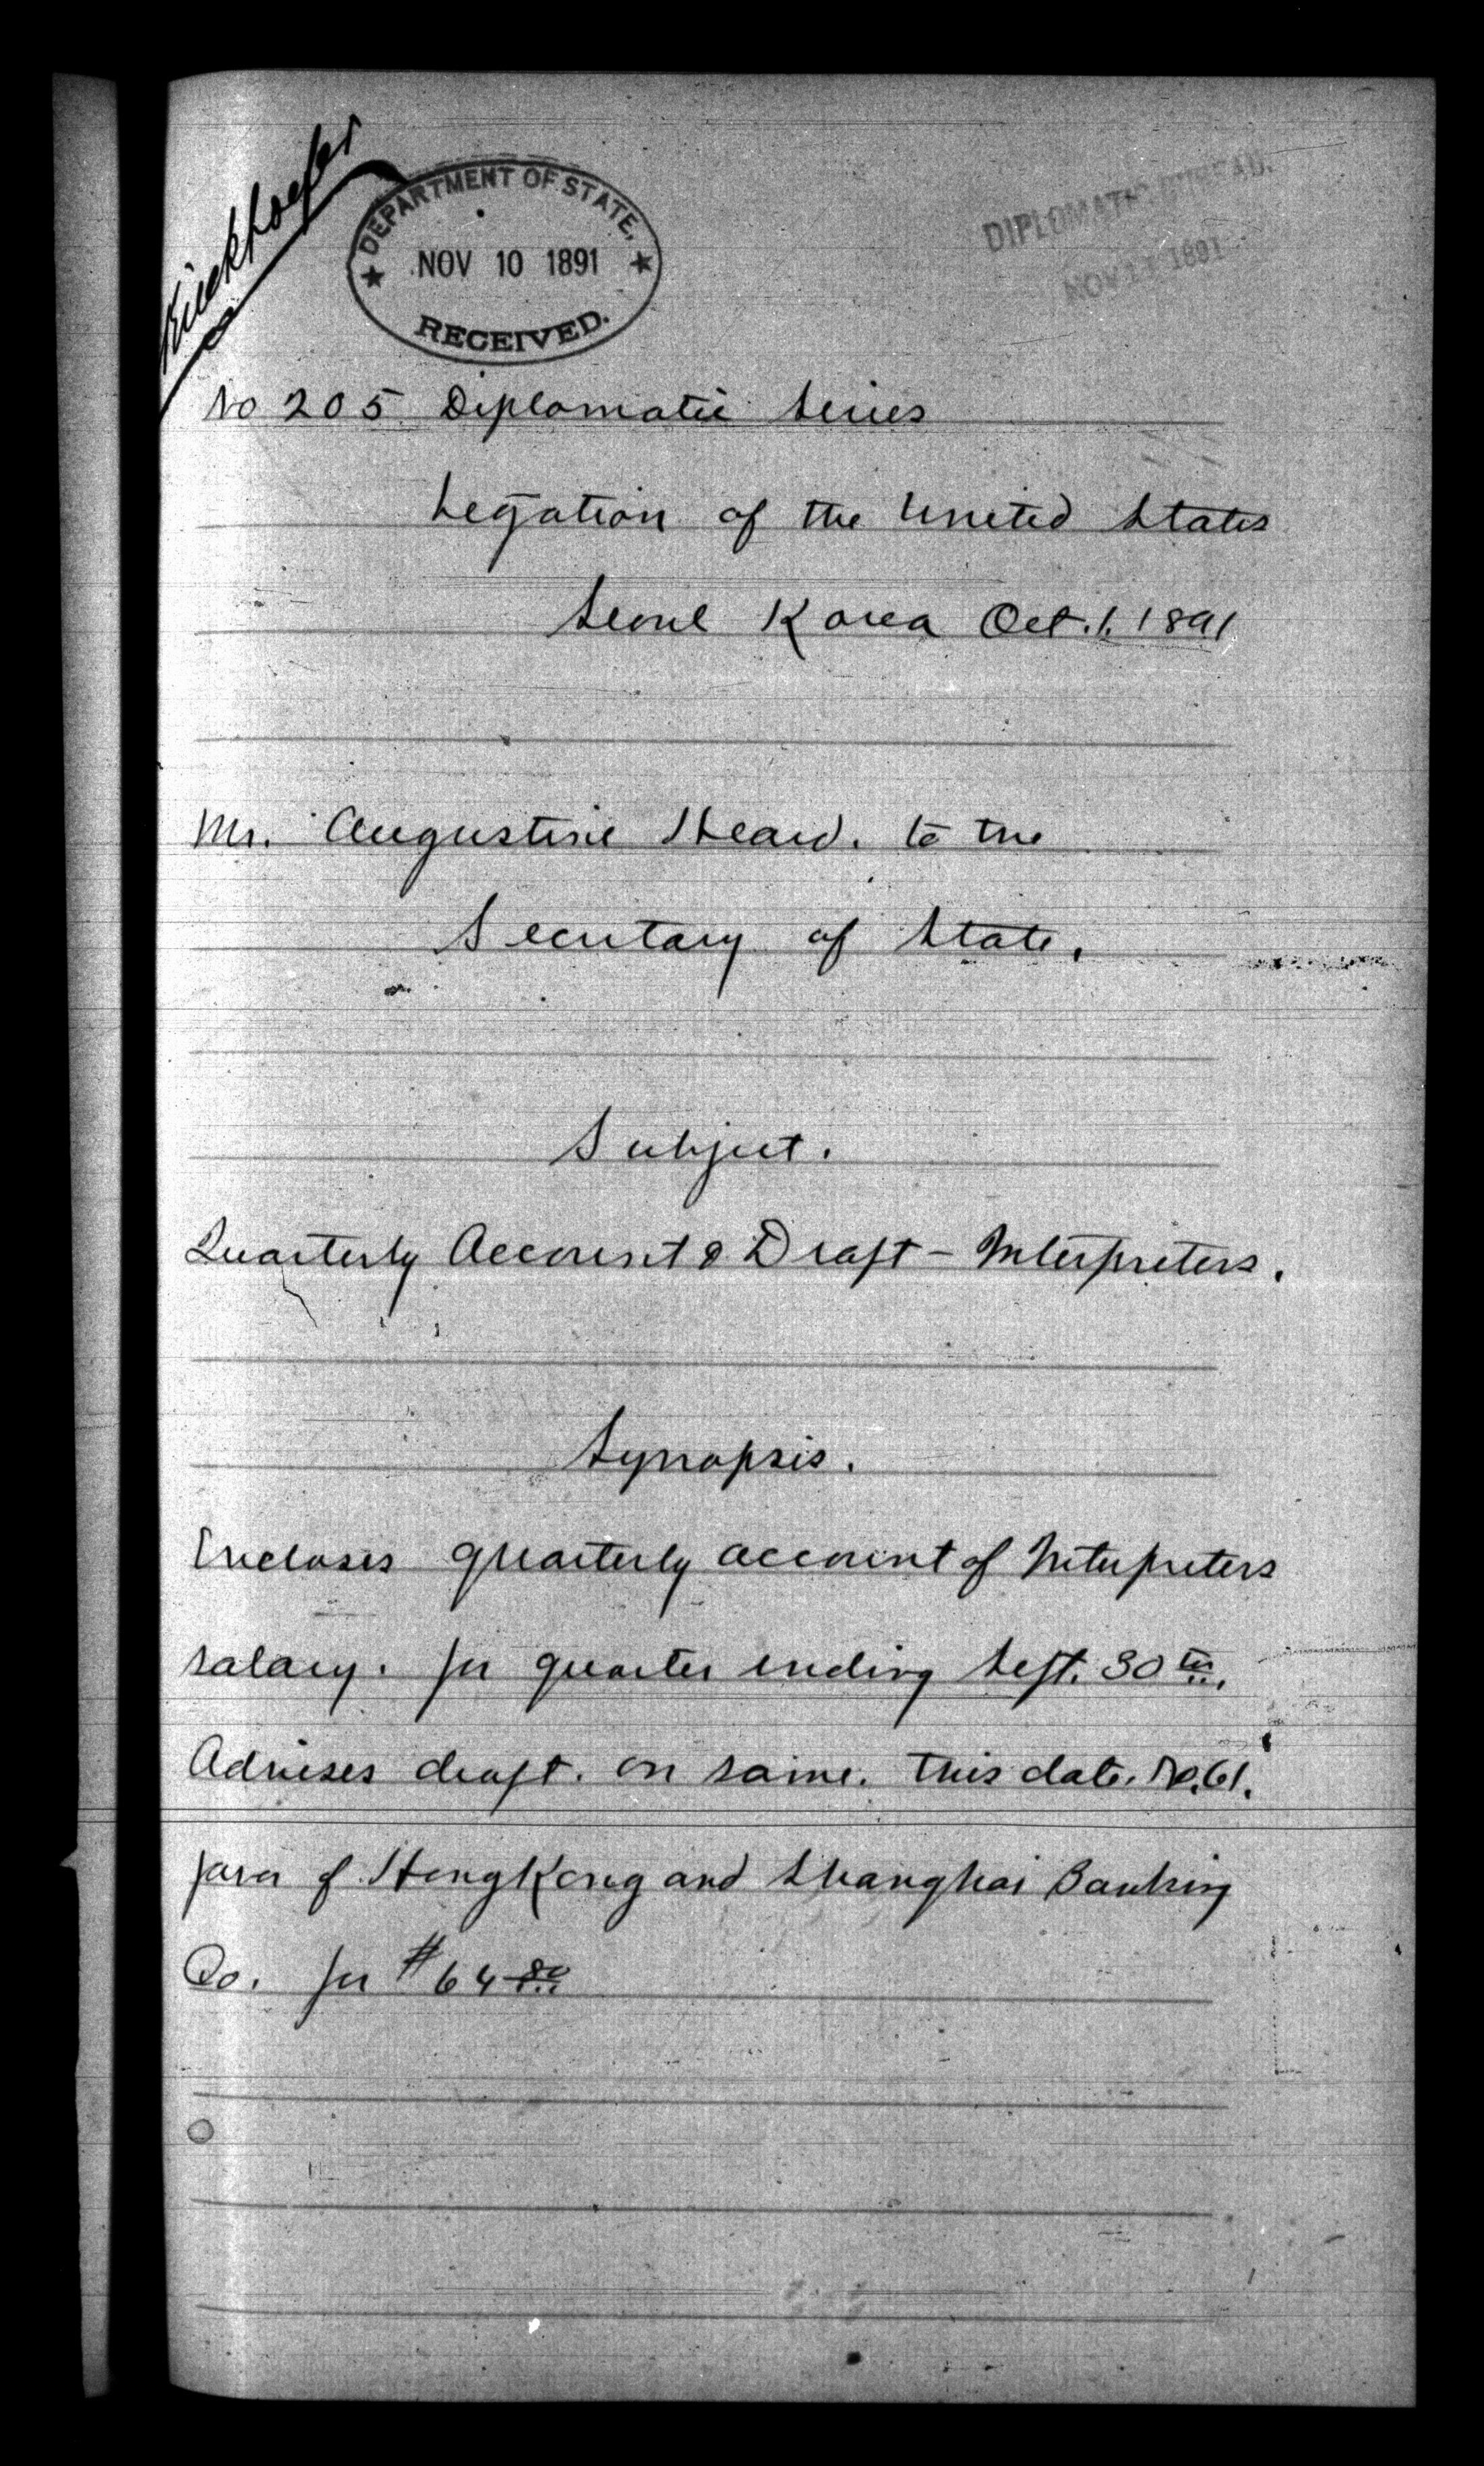 Kieckhoefer
DEPARTMENT OF STATE,
NOV 10 1891
RECEIVED.
DIPLOMATIC BUREAU.
NOV 11 1891
No 205 Diplomatic Series
Legation of the United States
Seoul Korea Oct. 1. 1891
Mr. Augustine Heard. to the
Secretary of State.
Subject.
Quarterly Account & Draft - Interpreters.
Synopsis.
Encloses quarterly account of Interpreters
salary. for quarter ending Sept. 30th.
Advises draft. on same. this date. No. 61.
favor of HongKong and Shanghai Banking
Co. for $64